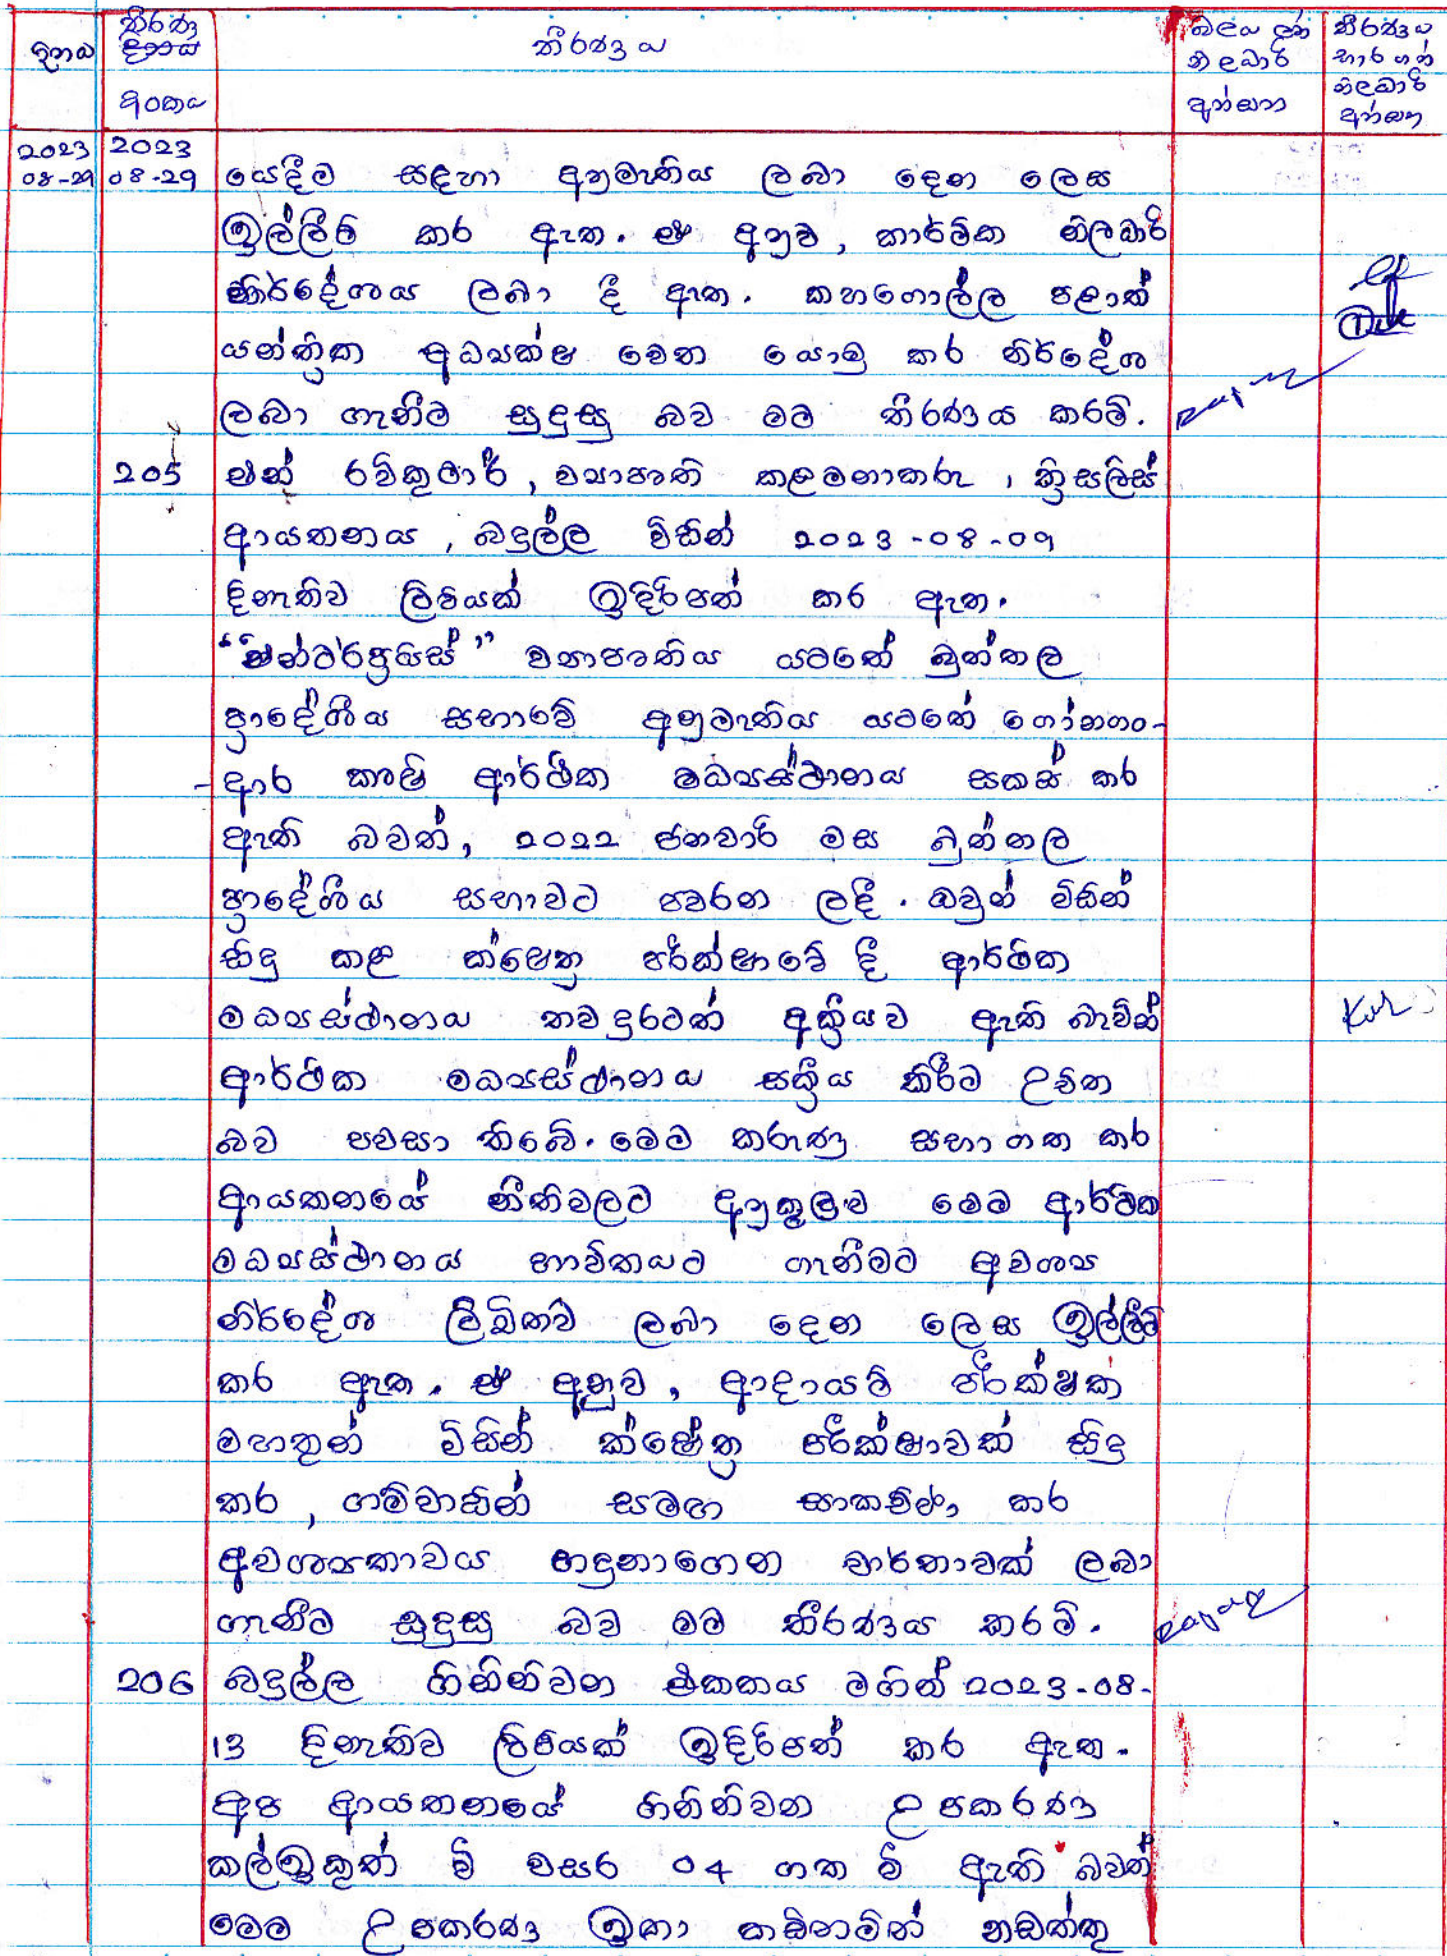 දිනය
තීරණ
අංකය
තීරණය
බලය ලත්
නිලධාරි
අත්සන
තීරණය
භාර ගත්
නිලධාරි
අත්සන
2023 08-29
2023 08-29
යෙදීම සඳහා අනුමැතිය ලබා දෙන ලෙස
ඉල්ලීම් කර ඇත. ඒ අනුව, කාර්මික නිලධාරි
නිර්දේශය ලබා දී ඇත. කහගොල්ල පළාත්
යන්ත්‍රික අධ්‍යක්ෂ වෙත යොමු කර නිර්දේශ
ලබා ගැනීම සුදුසු බව මම තීරණය කරමි.
205 එන් රවිකුමාර්, ව්‍යාපෘති කළමනාකරු, ක්‍රිසලිස්
ආයතනය, බදුල්ල විසින් 2023-08-09
දිනැතිව ලිපියක් ඉදිරිපත් කර ඇත.
“එන්ටර්ප්‍රයිස්” ව්‍යාපෘතිය යටතේ බුත්තල
ප්‍රාදේශීය සභාවේ අනුමැතිය යටතේ ගෝනගං-
-ආර කෘෂි ආර්ථික මධ්‍යස්ථානය සකස් කර
ඇති බවත්, 2022 ජනවාරි මස බුත්තල
ප්‍රාදේශීය සභාවට පවරන ලදී. ඔවුන් විසින්
සිදු කළ ක්ෂේත්‍ර පරීක්ෂාවේ දී ආර්ථික
මධ්‍යස්ථානය තවදුරටත් අක්‍රියව ඇති බැවින්
ආර්ථික මධ්‍යස්ථානය සක්‍රීය කිරීම උචිත
බව පවසා තිබේ. මෙම කරුණු සභාගත කර
ආයතනයේ නීතිවලට අනුකූලව මෙම ආර්ථික
මධ්‍යස්ථානය භාවිතයට ගැනීමට අවශ්‍ය
නිර්දේශ ලිඛිතව ලබා දෙන ලෙස ඉල්ලීම්
කර ඇත. ඒ අනුව, ආදායම් පරීක්ෂක
මහතුන් විසින් ක්ෂේත්‍ර පරීක්ෂාවක් සිදු
කර, ගම්වාසීන් සමඟ සාකච්ඡා කර
අවශ්‍යතාවය හඳුනාගෙන වාර්තාවක් ලබා
ගැනීම සුදුසු බව මම තීරණය කරමි.
206 බදුල්ල ගිනිනිවන ඒකකය මගින් 2023-08-
13 දිනැතිව ලිපියක් ඉදිරිපත් කර ඇත.
අප ආයතනයේ ගිනිනිවන උපකරණ
කල්ඉකුත් වී වසර 04 ගත වී ඇති බවත්
මෙම උපකරණ ඉතා කඩිනමින් නඩත්තු